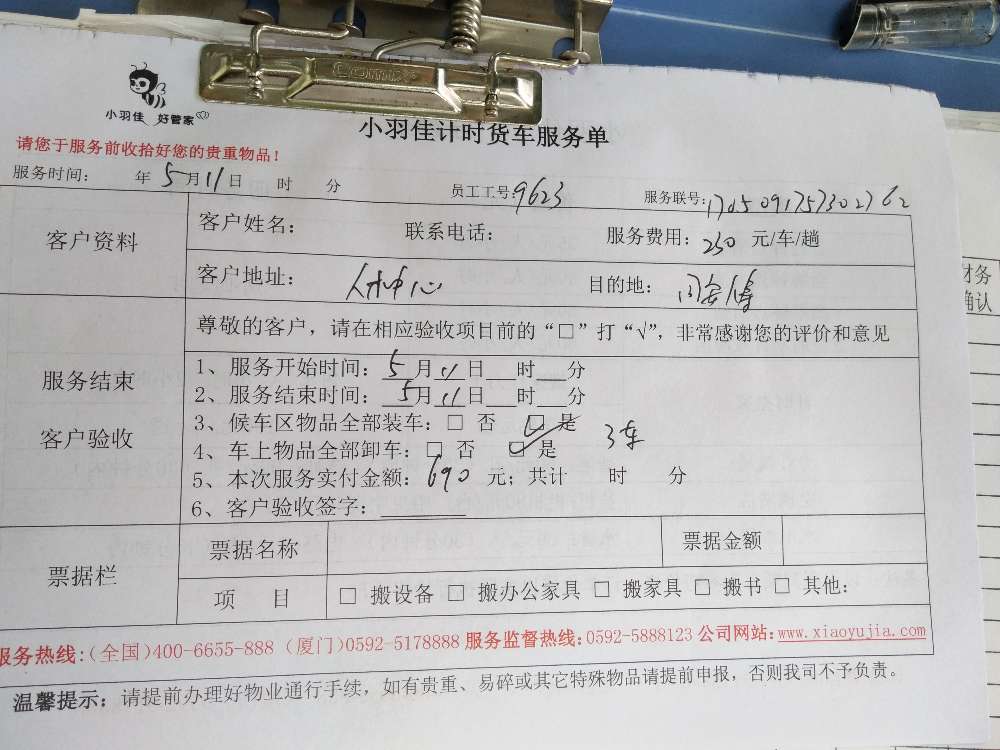 小羽佳 好管家
小羽佳计时货车服务单
请您于服务前收拾好您的贵重物品！
服务时间： 年 5月11日 时 分 员工工号:9623 服务联号:1705091757302762
客户资料
客户姓名： 联系电话： 服务费用：230 元/车/趟
客户地址： 人才中心 目的地：
尊敬的客户，请在相应验收项目前的“□”打“√”，非常感谢您的评价和意见
服务结束
客户验收
1、服务开始时间：5月11日__时__分
2、服务结束时间：5月11日__时__分
3、候车区物品全部装车：□ 否 □ 是
4、车上物品全部卸车：□ 否 □ 是 3车
5、本次服务实付金额：690 元；共计 时 分
6、客户验收签字：______
票据栏
票据名称 票据金额
项 目 □ 搬设备 □ 搬办公家具 □ 搬家具 □ 搬书 □ 其他：
服务热线:(全国)400-6655-888 (厦门)0592-5178888 服务监督热线:0592-5888123 公司网站:www.xiaoyujia.com
温馨提示：请提前办理好物业通行手续，如有贵重、易碎或其它特殊物品请提前申报，否则我司不予负责。
财务
确认